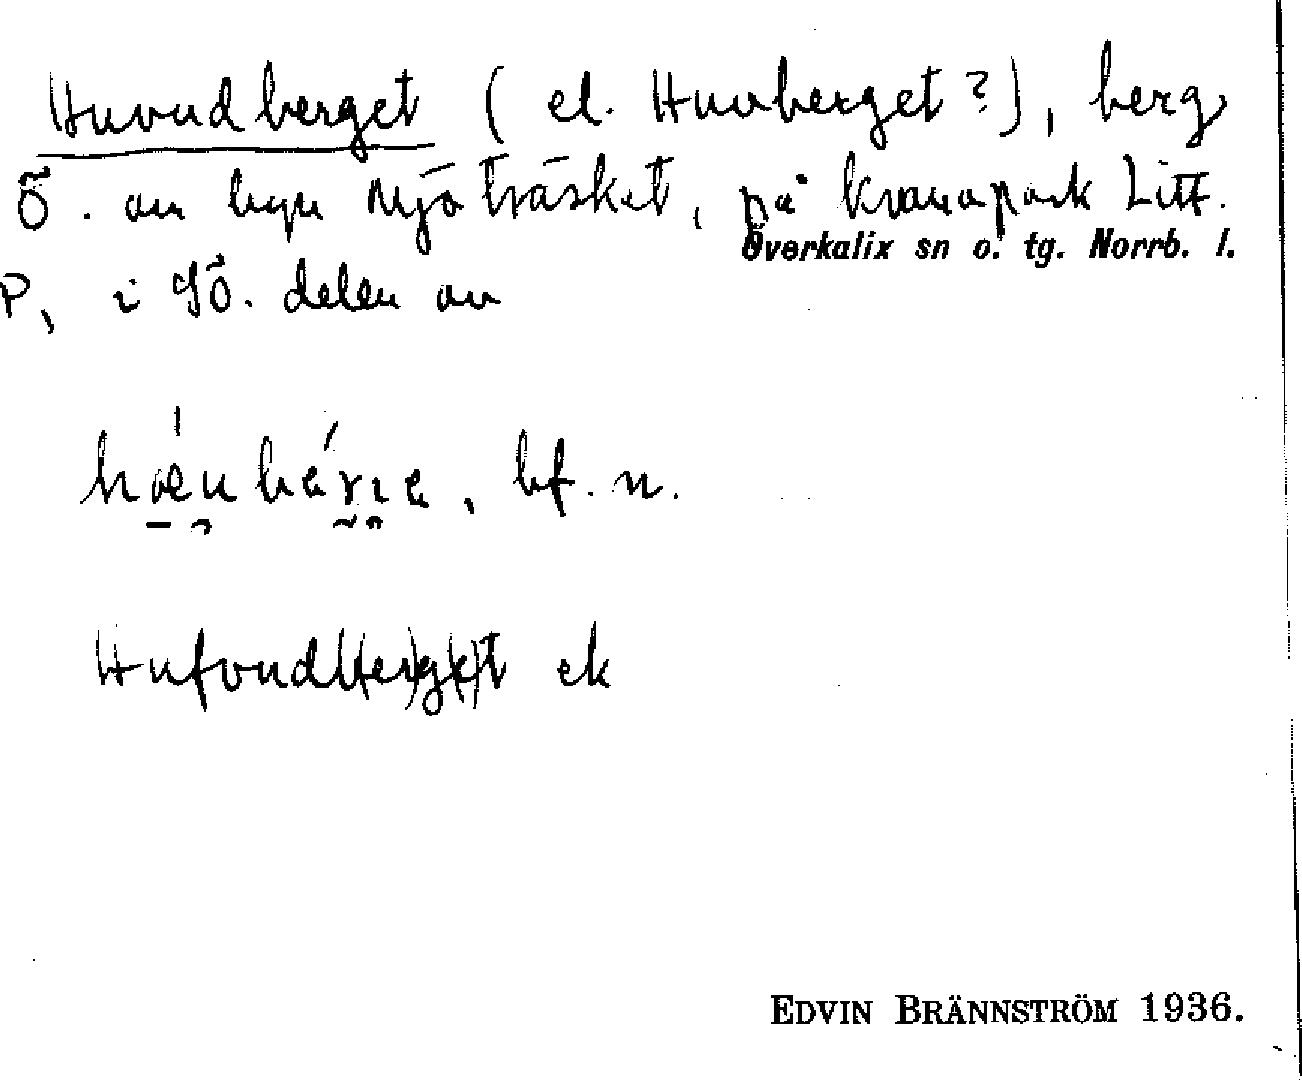 Huvudberget (el. Huvberget?), berg
Ö. om byn Mjöträsket, på kronopark Litt.
P, i SÖ. delen av
Överkalix sn o. tg. Norrb. l.
bf. n.
Hufvudberget ek
EDVIN BRÄNNSTRÖM 1936.